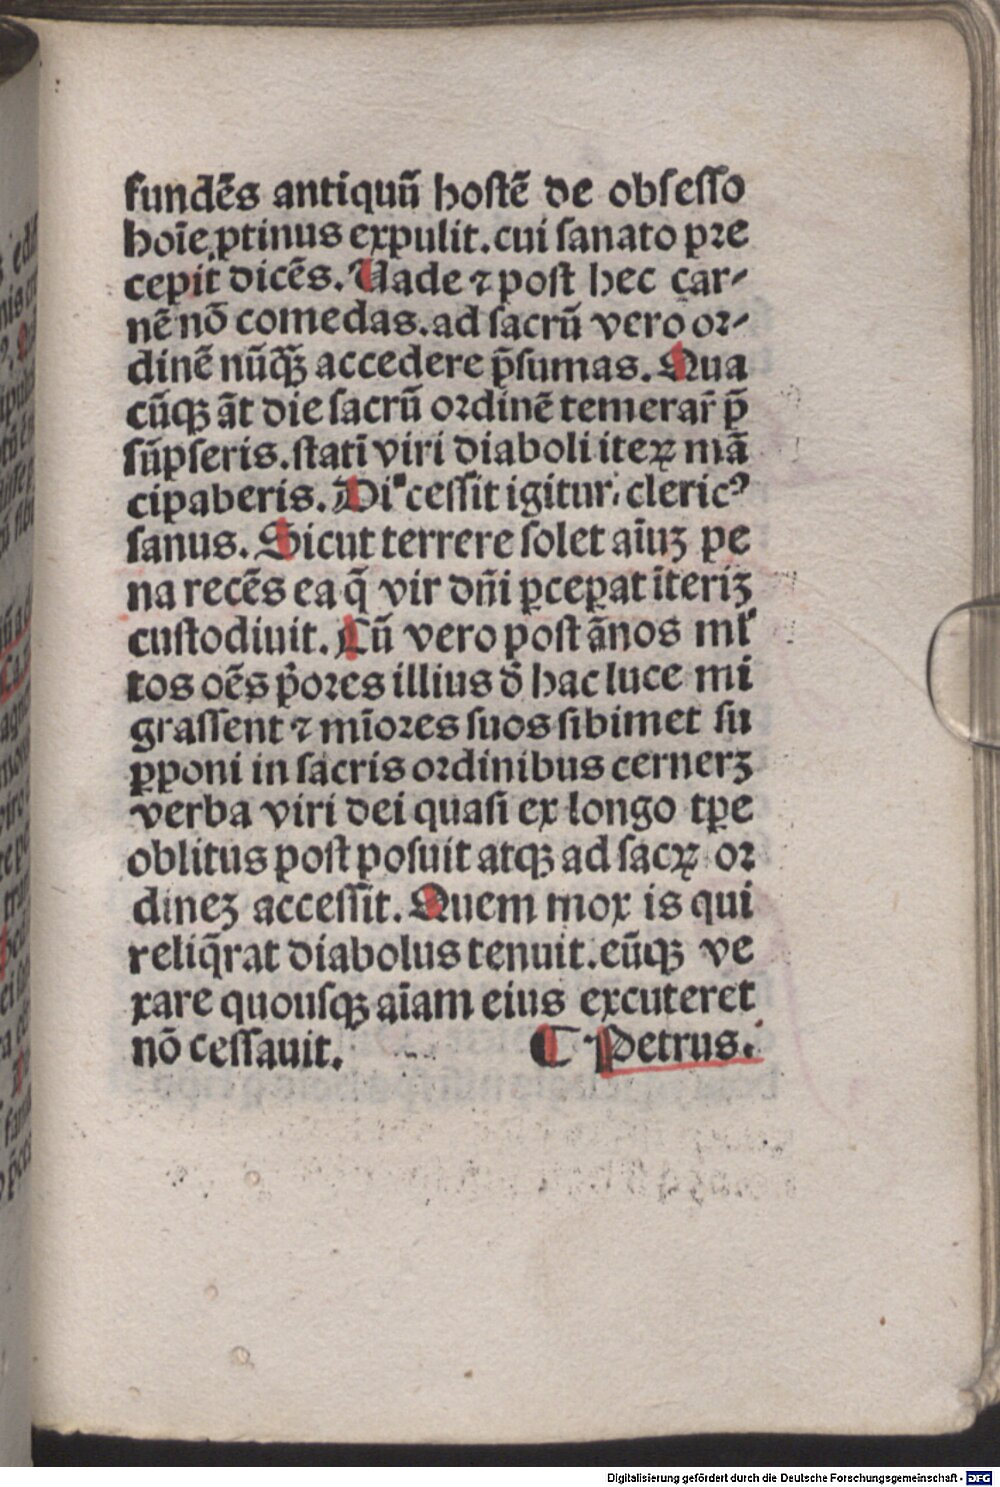 fundēs antiquū hostē de obsesso
hoīe ꝓtinus expulit. cui sanato pre
cepit dicēs. Uade ⁊ post hec car-
nē nō comedas. ad sacrū vero or-
dinē nūꝗ̄ accedere p̄sumas. Qua
cūqꝫ āt die sacrū ordinē temerar̄ p̄
sūpseris. statī viri diaboli iteꝝ mā
cipaberis. Discessit igitur clericꝰ
sanus. Sicut terrere solet aīuꝫ pe
na recēs ea q̄ vir dn̄i ꝑceꝑat īteriꝫ
custodiuit. Cū vero post ānos ml̓
tos oēs p̓ores illius d̓ hac luce mi
grassent ⁊ mīores suos sibimet su
ꝑponi in sacris ordinibus cernerꝫ
verba viri dei quasi ex longo tꝑe
oblitus post posuit atqꝫ ad sacꝝ or
dineꝫ accessit. Quem mox is qui
reliq̄rat diabolus tenuit. eūqꝫ ve
xare quousqꝫ aīam eius excuteret
nō cessauit. ¶ Petrus.
Digitalisierung gefördert durch die Deutsche Forschungsgemeinschaft - DFG